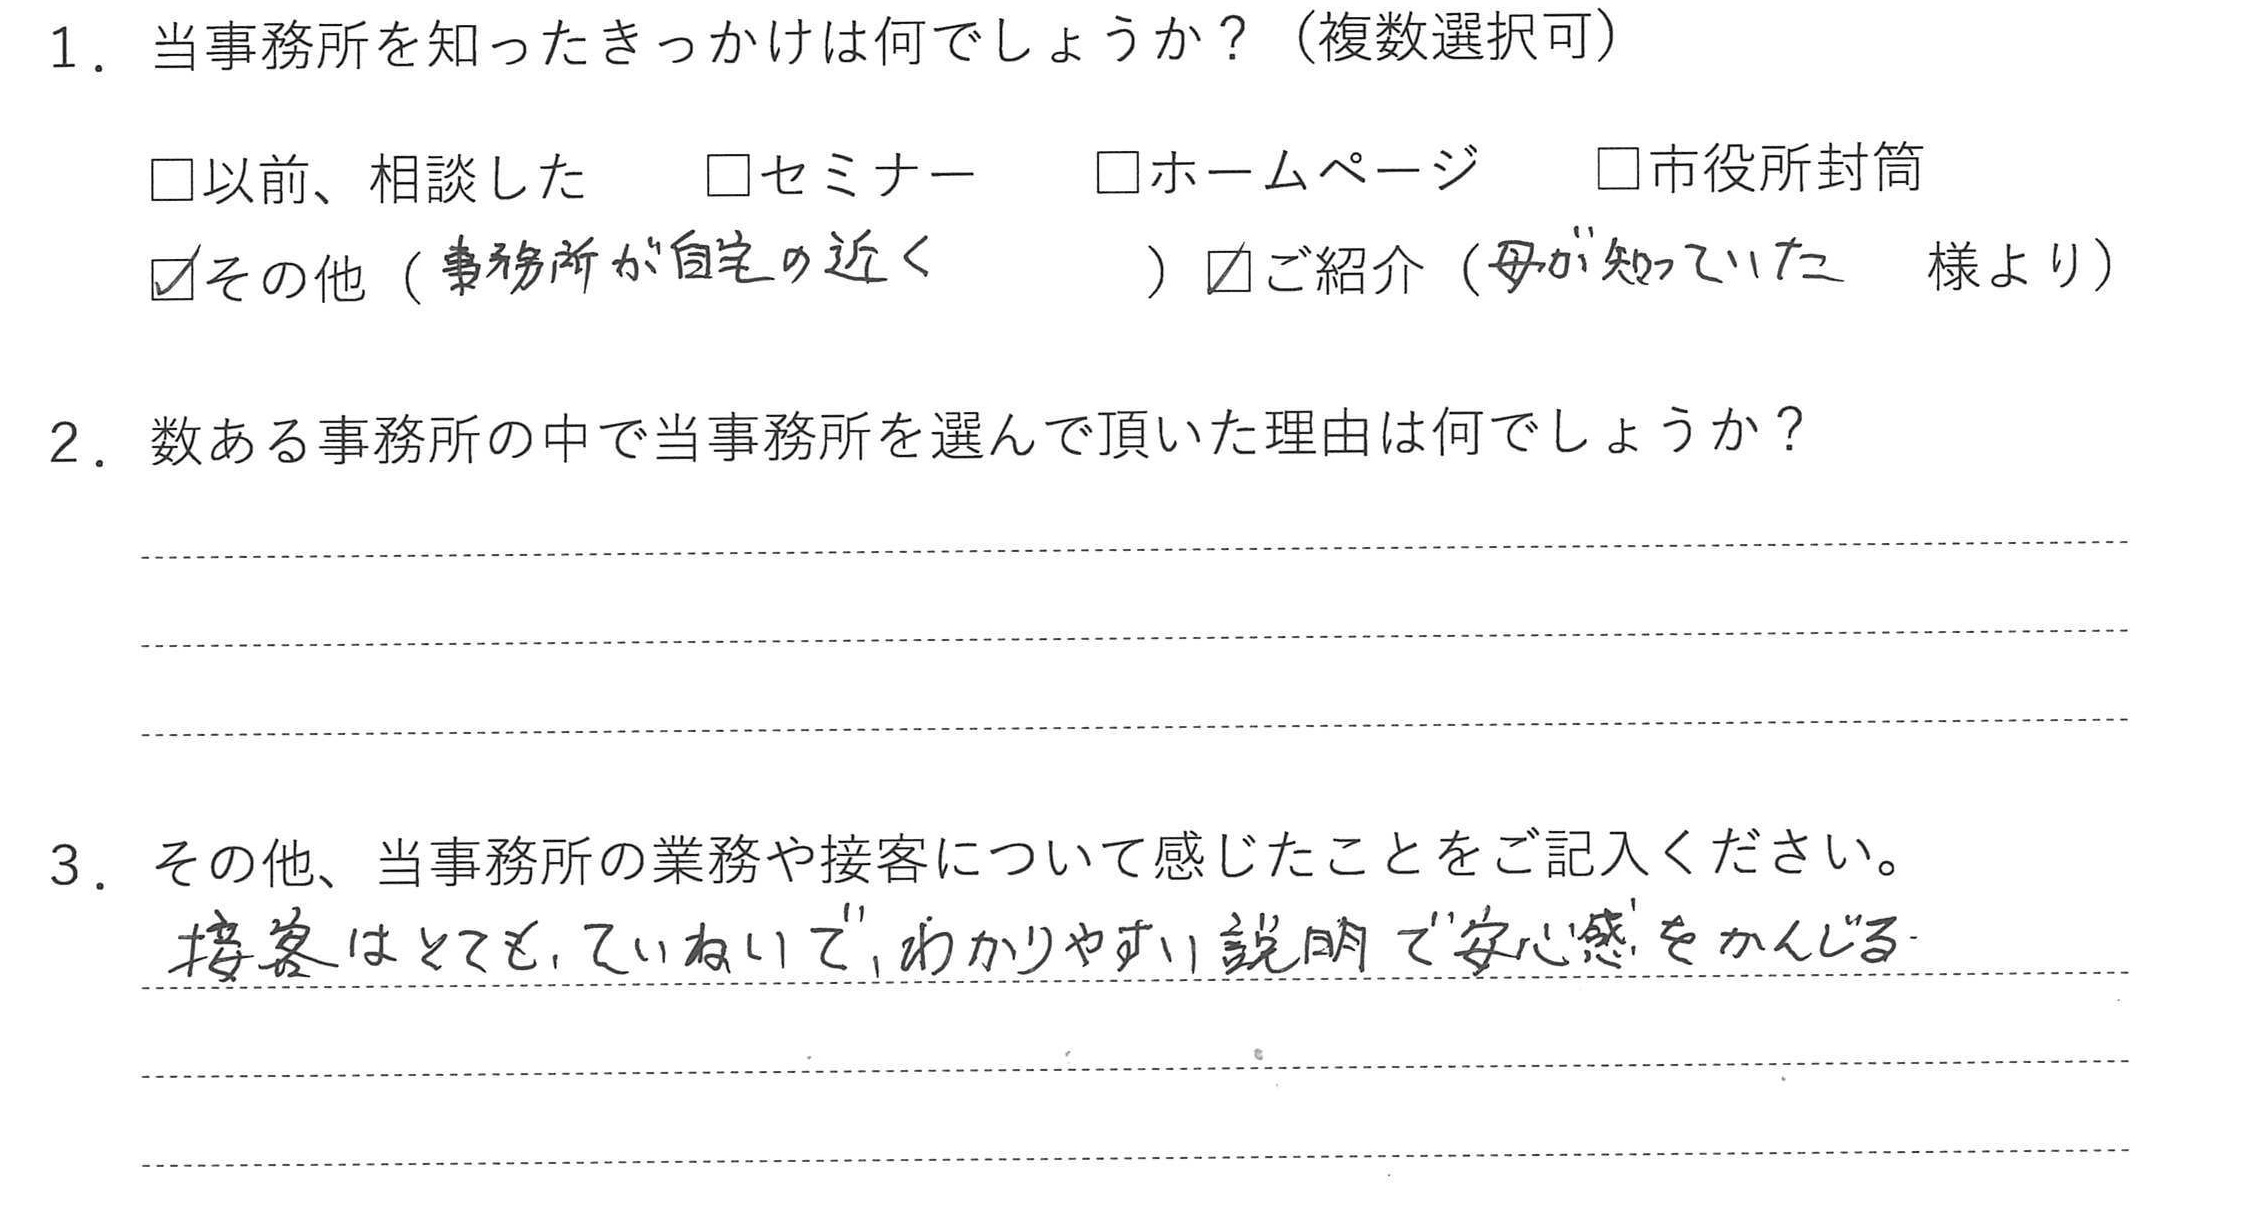 1．当事務所を知ったきっかけは何でしょうか？（複数選択可）
□以前、相談した　□セミナー　□ホームページ　□市役所封筒
☑その他（事務所が自宅の近く　）☑ご紹介（母が知っていた　様より）
2．数ある事務所の中で当事務所を選んで頂いた理由は何でしょうか？
3．その他、当事務所の業務や接客について感じたことをご記入ください。
接客はとても、ていねいで、わかりやすい説明で安心感をかんじる